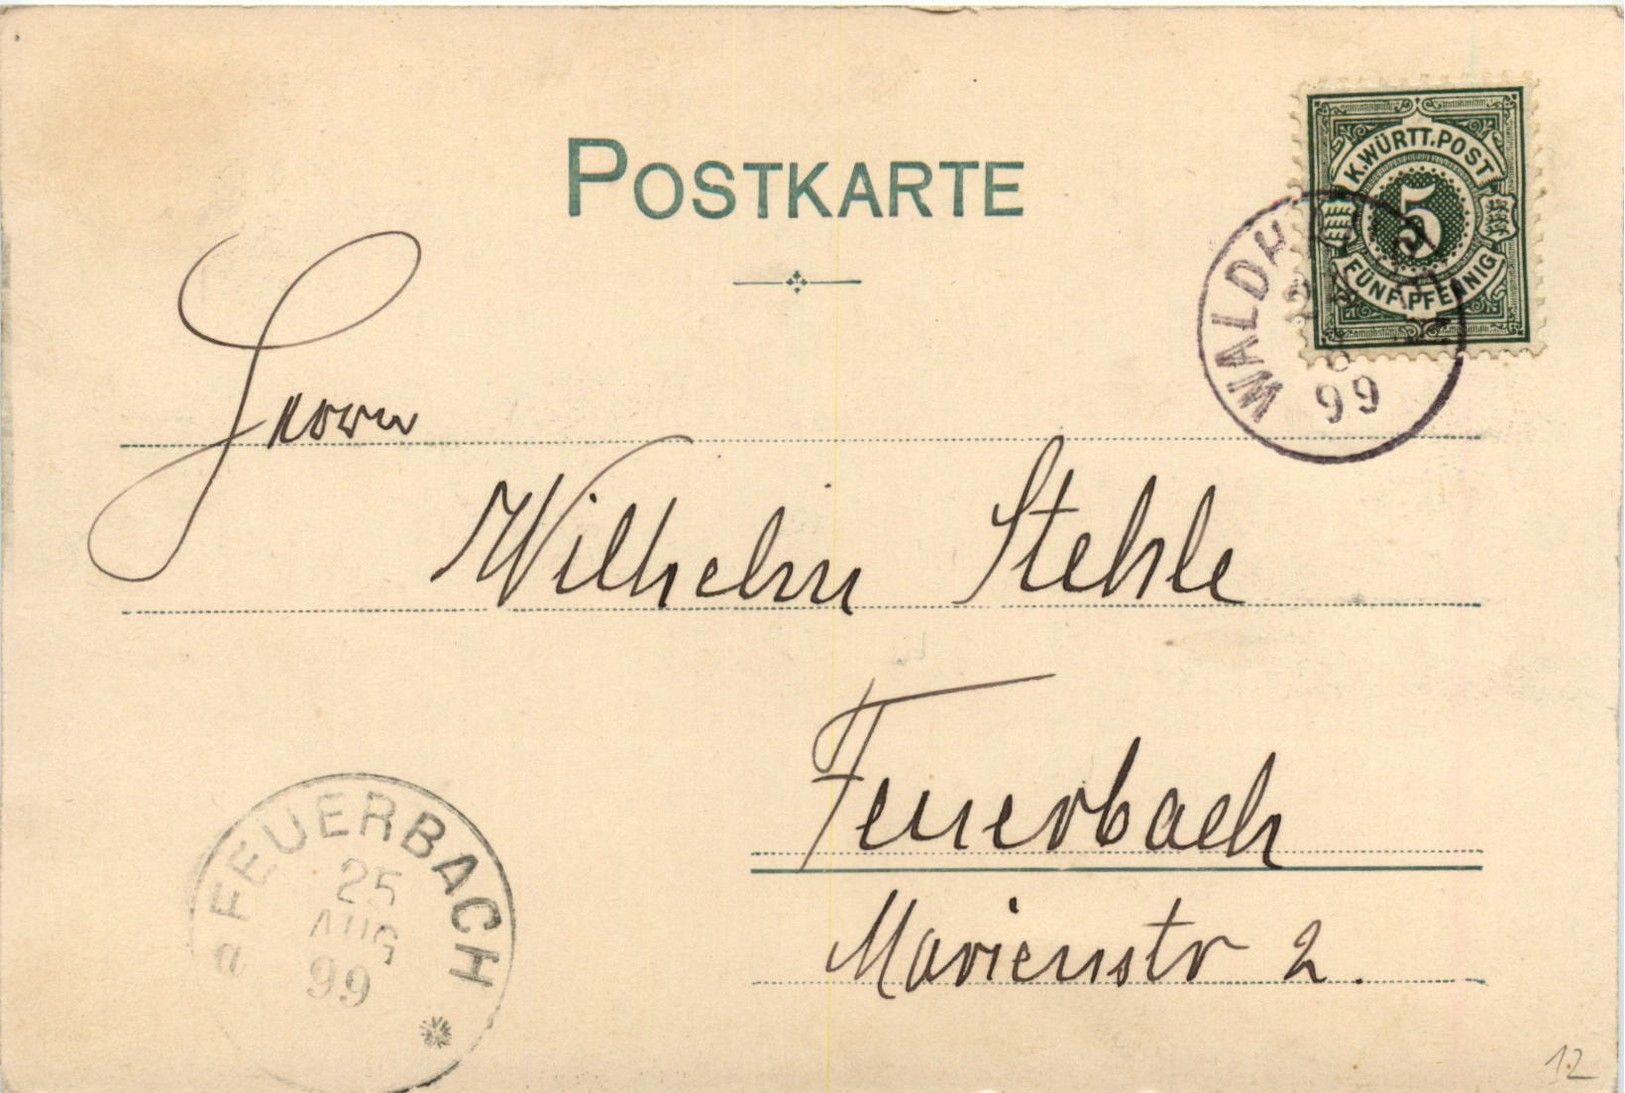 POSTKARTE
K. WÜRTT. POST
5
FÜNF PFENNIG
WALDH
99
Herrn
Wilhelm Stehle
Feuerbach
Marienstr 2.
FEUERBACH
25
AUG
99
a
12